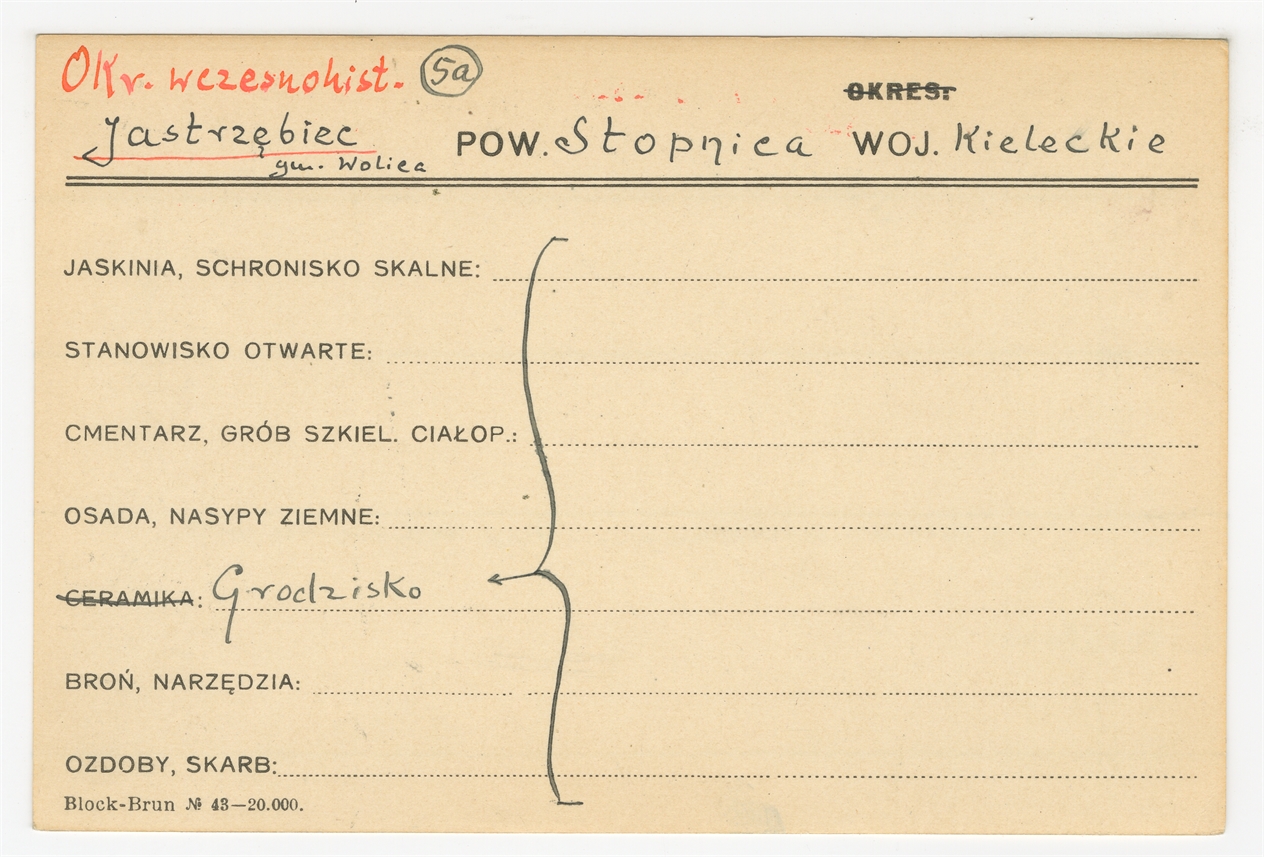 Okr. wczesnohist. 5a
OKRES:
Jastrzębiec POW. Stopnica WOJ. Kieleckie
gm. Wolica
JASKINIA, SCHRONISKO SKALNE:
STANOWISKO OTWARTE:
CMENTARZ, GRÓB SZKIEL. CIAŁOP.:
OSADA, NASYPY ZIEMNE:
CERAMIKA: Grodzisko
BROŃ, NARZĘDZIA:
OZDOBY, SKARB:
Block-Brun № 43—20.000.